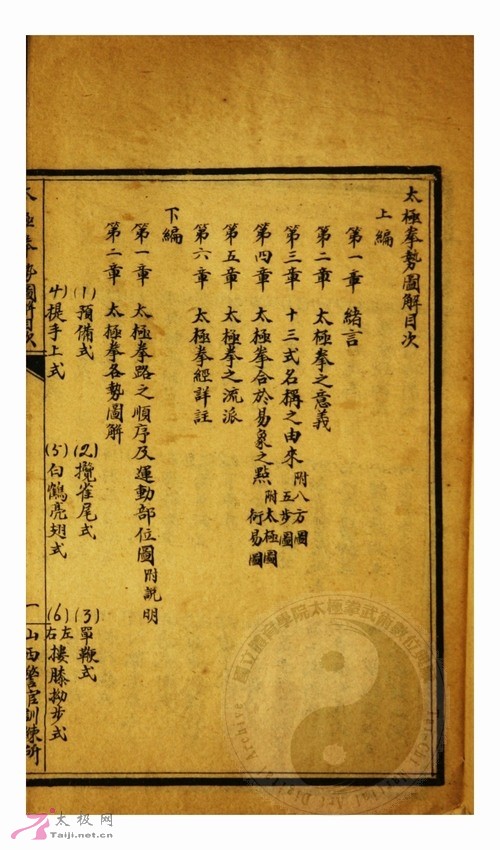 太極拳勢圖解目次
上編
第一章 緒言
第二章 太極拳之意義
第三章 十三式名稱之由來 附八方圖 五步圖
第四章 太極拳合於易象之點 附太極圖 衍易圖
第五章 太極拳之流派
第六章 太極拳經詳註
下編
第一章 太極拳路之順序及運動部位圖 附説明
第二章 太極拳各勢圖解
(1) 預備式 (2) 攬雀尾式 (3) 單鞭式
4) 提手上式 (5) 白鶴亮翅式 (6) 左右摟膝拗步式
太極拳勢圖解目次 一 山西警官訓練所
國立體育學院太極拳武術數位典藏
Taichi Martial Art Digital Archive
太极网
Taiji.net.cn